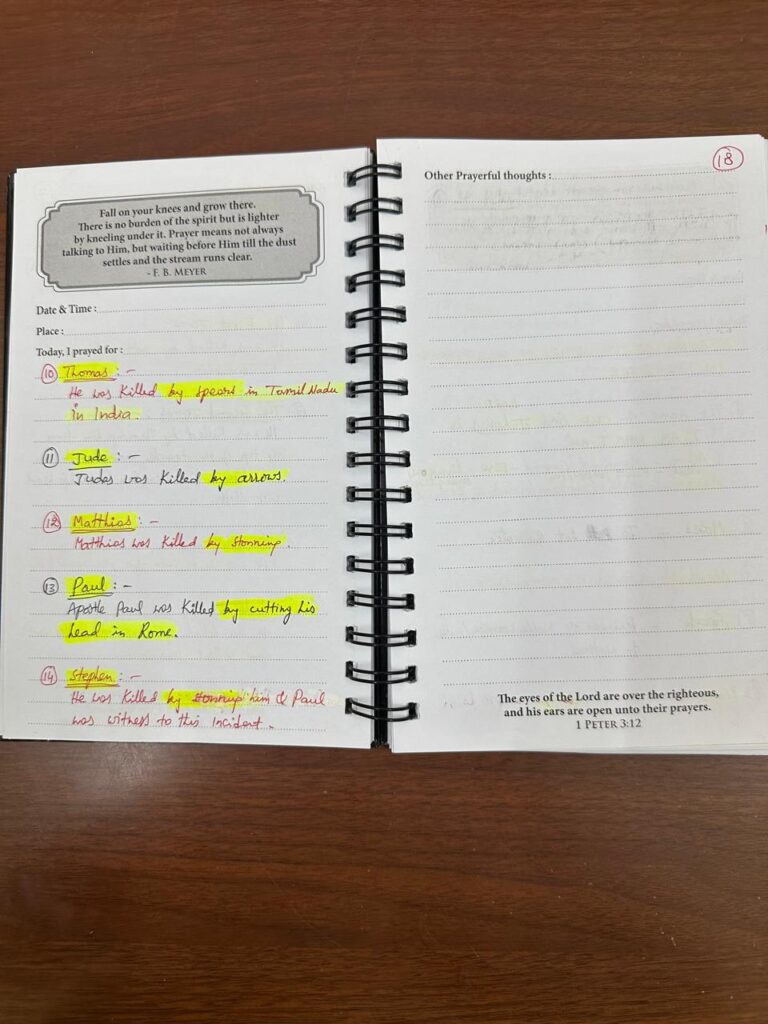 Fall on your knees and grow there.
There is no burden of the spirit but is lighter
by kneeling under it. Prayer means not always
talking to Him, but waiting before Him till the dust
settles and the stream runs clear.
- F. B. MEYER
Date & Time :
Place :
Today, I prayed for :
10 Thomas : -
He was killed by spears in Tamil Nadu
in India.
11 Jude : -
Judas was killed by arrows.
12 Matthias : -
Matthias was killed by stonning.
13 Paul : -
Apostle Paul was killed by cutting his
head in Rome.
14 Stephen : -
He was killed by stonning him & Paul
was witness to this incident.
18
Other Prayerful thoughts :
The eyes of the Lord are over the righteous,
and his ears are open unto their prayers.
1 PETER 3:12